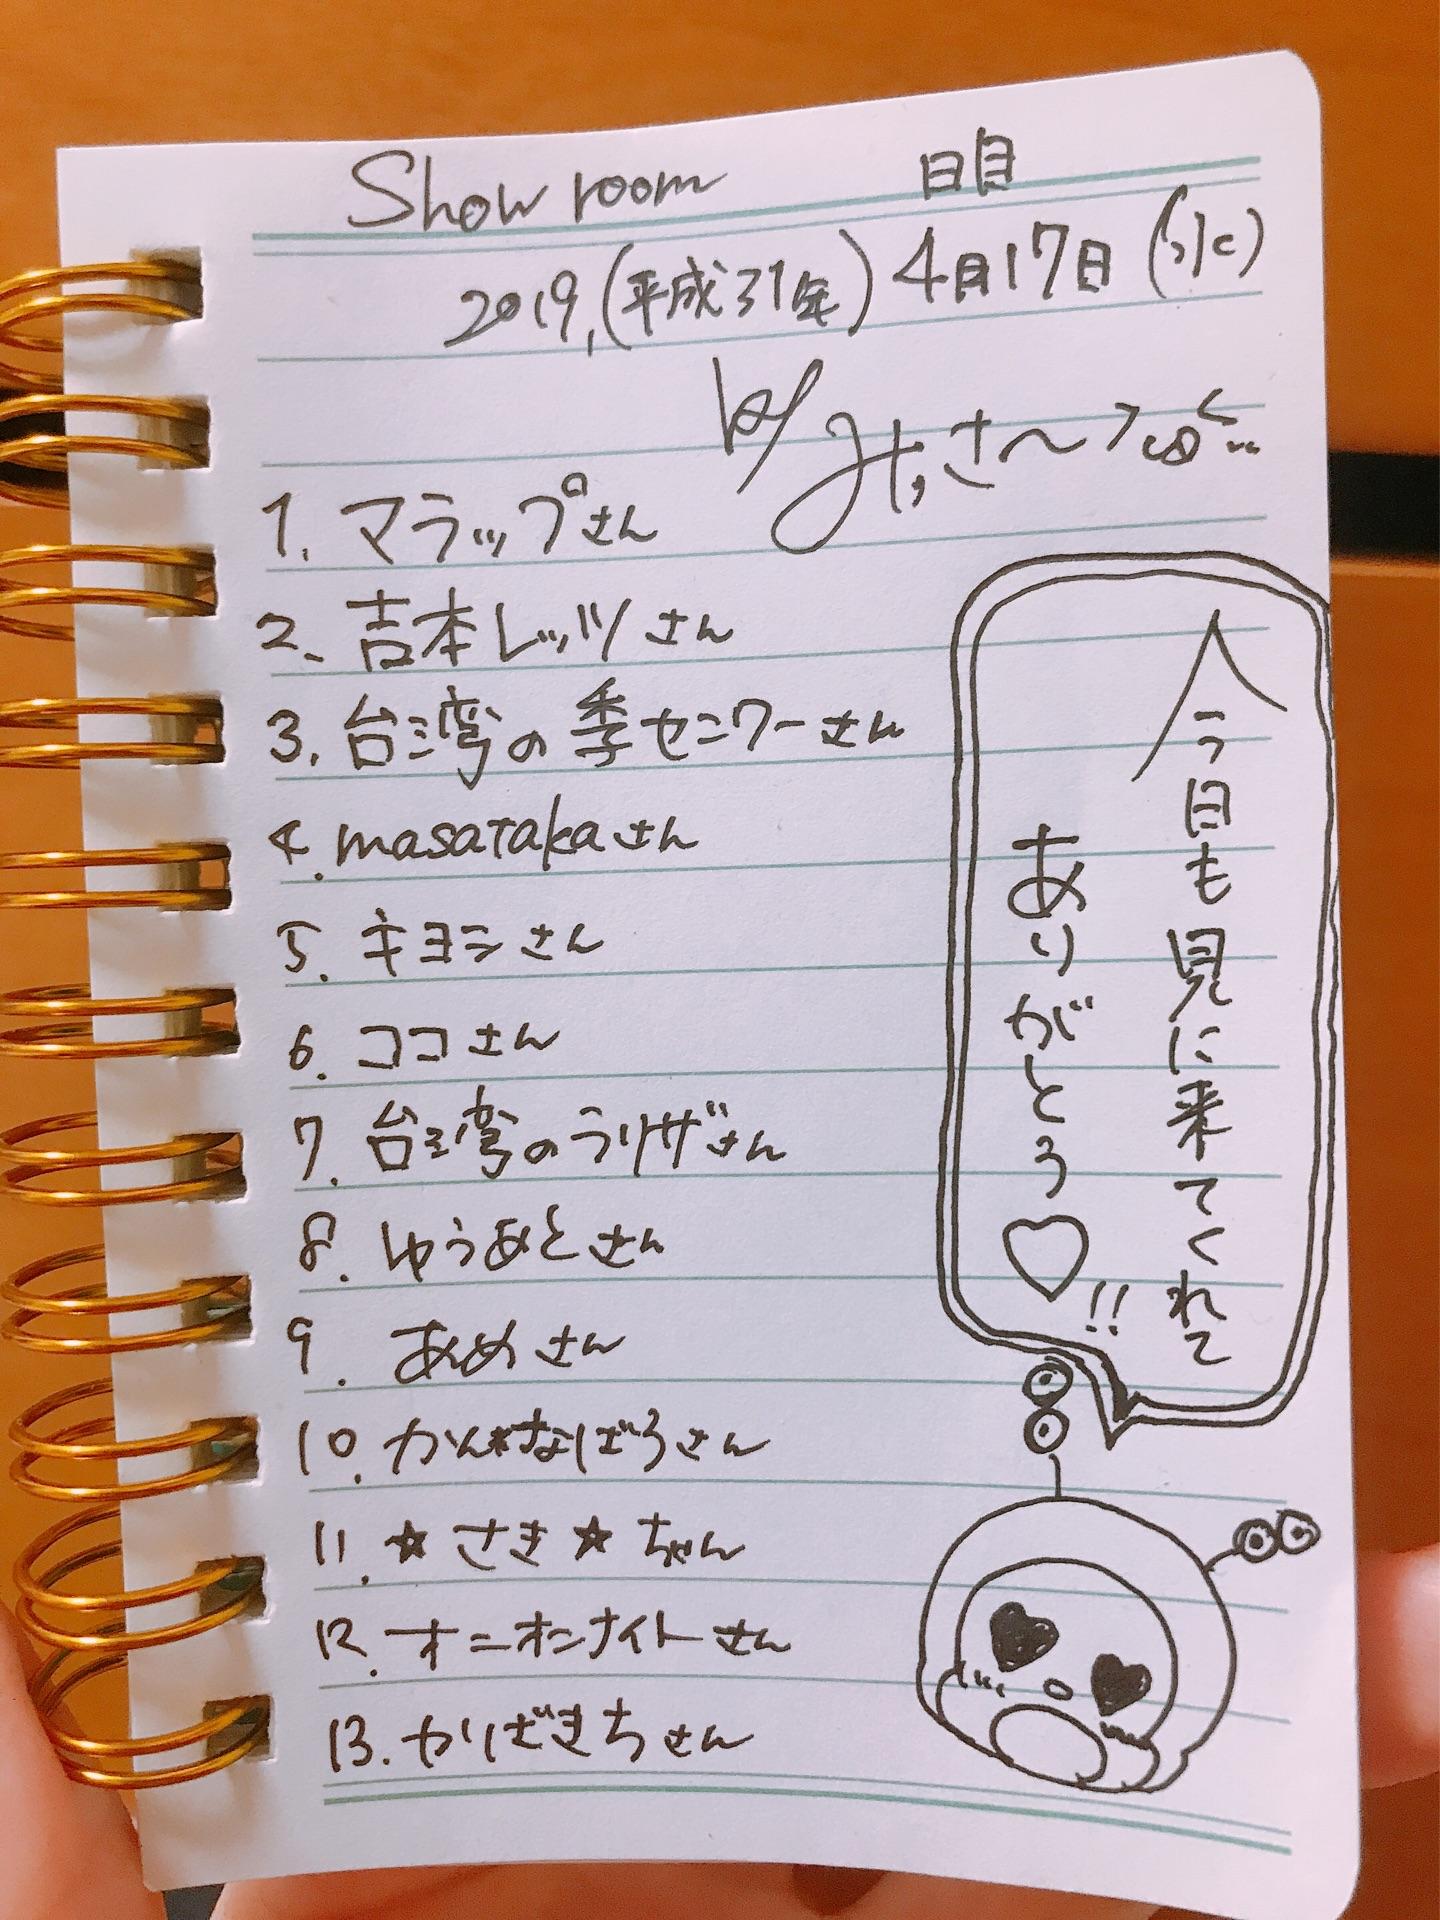 Show room 日目
2019,(平成31年)4月17日(水)
by みさ〜
1. マラップさん
2. 吉本レッツさん
3. 台湾の季セニワーさん
4. masatakaさん
5. キヨシさん
6. ココさん
7. 台湾のラリザさん
8. ゆうあとさん
9. あめさん
10. かん*なばろさん
11. ☆さき☆ちゃん
12. オニオンナイトさん
13. かりざきちさん
今日も見に来てくれて
ありがとう♡!!